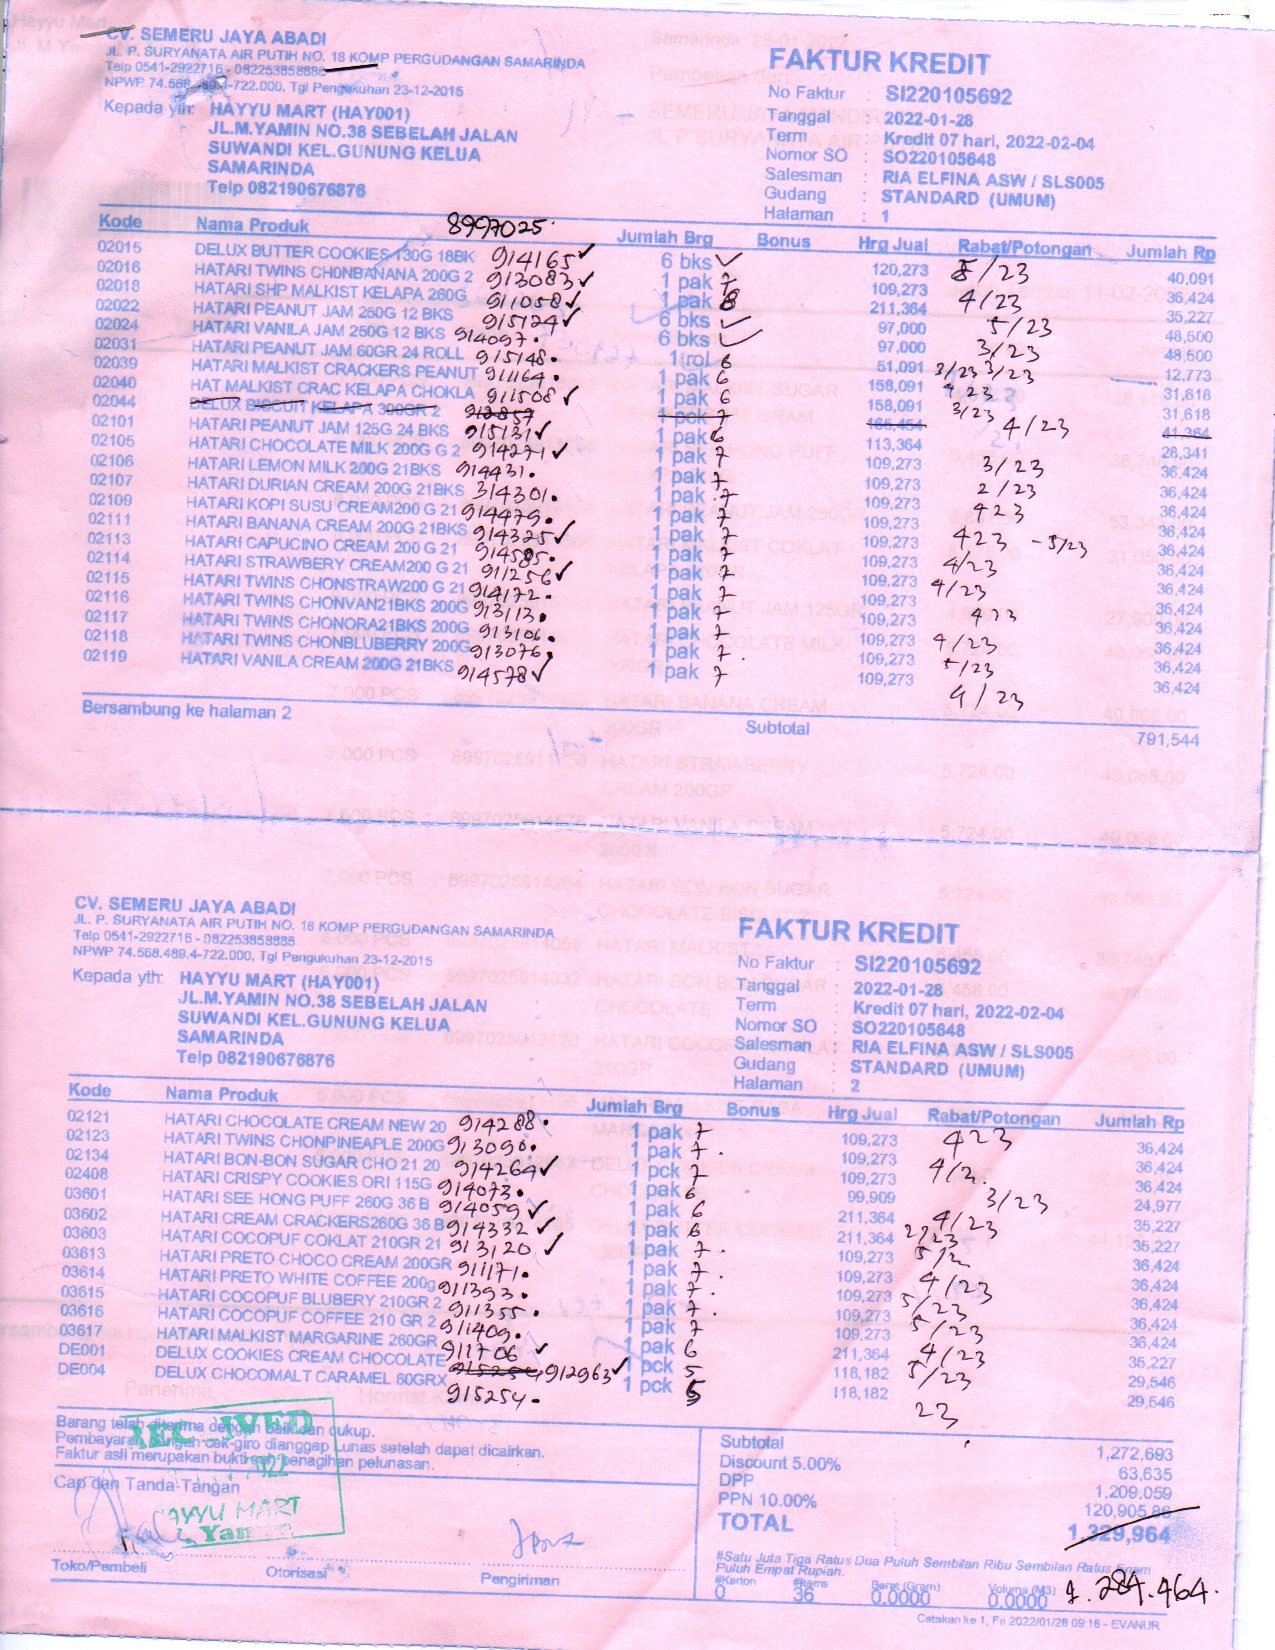 CV. SEMERU JAYA ABADI
JL. P. SURYANATA AIR PUTIH NO. 18 KOMP PERGUDANGAN SAMARINDA
Telp 0541-2922716 - 082253858886
NPWP 74.568. -722.000, Tgl Pengukuhan 23-12-2015
Kepada yth: HAYYU MART (HAY001)
JL.M.YAMIN NO.38 SEBELAH JALAN
SUWANDI KEL.GUNUNG KELUA
SAMARINDA
Telp 082190676876
FAKTUR KREDIT
No Faktur : SI220105692
Tanggal : 2022-01-28
Term : Kredit 07 hari, 2022-02-04
Nomor SO : SO220105648
Salesman : RIA ELFINA ASW / SLS005
Gudang : STANDARD (UMUM)
Halaman : 1
8997025.
Kode Nama Produk Jumlah Brg Bonus Hrg Jual Rabat/Potongan Jumlah Rp
02015 DELUX BUTTER COOKIES 130G 18BK 914165✓ 6 bks ✓ 120,273 5/23 40,091
02016 HATARI TWINS CHONBANANA 200G 2 913083✓ 1 pak 7 109,273 36,424
02018 HATARI SHP MALKIST KELAPA 260G 911058✓ 1 pak 6 211,364 4/23 35,227
02022 HATARI PEANUT JAM 250G 12 BKS 915124✓ 6 bks ✓ 97,000 5/23 48,500
02024 HATARI VANILA JAM 250G 12 BKS 914097. 6 bks ✓ 97,000 3/23 48,500
02031 HATARI PEANUT JAM 60GR 24 ROLL 915148. 1 rol 6 51,091 3/23 3/23 12,773
02039 HATARI MALKIST CRACKERS PEANUT 911164. 1 pak 6 158,091 423 31,618
02040 HAT MALKIST CRAC KELAPA CHOKLA 911508✓ 1 pak 6 158,091 3/23 31,618
02044 DELUX BISCUIT KELAPA 300GR 2 912857 1 pck 7 165,454 4/23 41,364
02101 HATARI PEANUT JAM 125G 24 BKS 915131✓ 1 pak 6 113,364 28,341
02105 HATARI CHOCOLATE MILK 200G G 2 914271✓ 1 pak 7 109,273 3/23 36,424
02106 HATARI LEMON MILK 200G 21BKS 914431. 1 pak 7 109,273 2/23 36,424
02107 HATARI DURIAN CREAM 200G 21BKS 314301. 1 pak 7 109,273 423 36,424
02109 HATARI KOPI SUSU CREAM200 G 21 914479. 1 pak 7 109,273 36,424
02111 HATARI BANANA CREAM 200G 21BKS 914325✓ 1 pak 7 109,273 423 -5/23 36,424
02113 HATARI CAPUCINO CREAM 200 G 21 914585. 1 pak 7 109,273 4/23 36,424
02114 HATARI STRAWBERY CREAM200 G 21 911256✓ 1 pak 7 109,273 4/23 36,424
02115 HATARI TWINS CHONSTRAW200 G 21 914172. 1 pak 7 109,273 36,424
02116 HATARI TWINS CHONVAN21BKS 200G 913113. 1 pak 7 109,273 423 36,424
02117 HATARI TWINS CHONORA21BKS 200G 913106. 1 pak 7 109,273 4/23 36,424
02118 HATARI TWINS CHONBLUBERRY 200G 913076. 1 pak 7. 109,273 5/23 36,424
02119 HATARI VANILA CREAM 200G 21BKS 914578✓ 1 pak 7 109,273 4/23 36,424
Bersambung ke halaman 2 Subtotal 791,544
CV. SEMERU JAYA ABADI
JL. P. SURYANATA AIR PUTIH NO. 18 KOMP PERGUDANGAN SAMARINDA
Telp 0541-2922716 - 082253858886
NPWP 74.568.489.4-722.000, Tgl Pengukuhan 23-12-2015
Kepada yth: HAYYU MART (HAY001)
JL.M.YAMIN NO.38 SEBELAH JALAN
SUWANDI KEL.GUNUNG KELUA
SAMARINDA
Telp 082190676876
FAKTUR KREDIT
No Faktur : SI220105692
Tanggal : 2022-01-28
Term : Kredit 07 hari, 2022-02-04
Nomor SO : SO220105648
Salesman : RIA ELFINA ASW / SLS005
Gudang : STANDARD (UMUM)
Halaman : 2
Kode Nama Produk Jumlah Brg Bonus Hrg Jual Rabat/Potongan Jumlah Rp
02121 HATARI CHOCOLATE CREAM NEW 20 914288. 1 pak 7 109,273 423 36,424
02123 HATARI TWINS CHONPINEAPLE 200G 913090. 1 pak 7. 109,273 36,424
02134 HATARI BON-BON SUGAR CHO 21 20 914264✓ 1 pck 7 109,273 4/2. 36,424
02408 HATARI CRISPY COOKIES ORI 115G 914073. 1 pak 6 99,909 3/23 24,977
03601 HATARI SEE HONG PUFF 260G 36 B 914059✓ 1 pak 6 211,364 4/23 35,227
03602 HATARI CREAM CRACKERS260G 36 B 914332✓ 1 pak 6 211,364 2/23 35,227
03603 HATARI COCOPUF COKLAT 210GR 21 913120✓ 1 pak 7. 109,273 5/2 36,424
03613 HATARI PRETO CHOCO CREAM 200GR 911171. 1 pak 7. 109,273 4/23 36,424
03614 HATARI PRETO WHITE COFFEE 200g 911393. 1 pak 7. 109,273 5/23 36,424
03615 HATARI COCOPUF BLUBERY 210GR 2 911355. 1 pak 7. 109,273 5/23 36,424
03616 HATARI COCOPUF COFFEE 210 GR 2 911409. 1 pak 7 109,273 36,424
03617 HATARI MALKIST MARGARINE 260GR 911706 ✓ 1 pak 6 211,364 4/23 35,227
DE001 DELUX COOKIES CREAM CHOCOLATE 915254 912963✓ 1 pck 5 118,182 5/23 29,546
DE004 DELUX CHOCOMALT CARAMEL 60GRX 915254. 1 pck 5 118,182 23 29,546
Barang telah diterima dengan baik dan cukup.
Pembayaran dengan cek-giro dianggap Lunas setelah dapat dicairkan.
Faktur asli merupakan bukti sah penagihan pelunasan.
Cap dan Tanda-Tangan
RECEIVED
2022
HAYYU MART
Toko/Pembeli Otorisasi Pengiriman
Subtotal 1,272,693
Discount 5.00% 63,635
DPP 1,209,059
PPN 10.00% 120,905.86
TOTAL 1,329,964
#Satu Juta Tiga Ratus Dua Puluh Sembilan Ribu Sembilan Ratus Enam
Puluh Empat Rupiah.
#Karton #Items Berat (Gram) Volume (M3)
0 36 0.0000 0.0000
1.284.464.
Cetakan ke 1, Fri 2022/01/28 09:16 - EVANUR